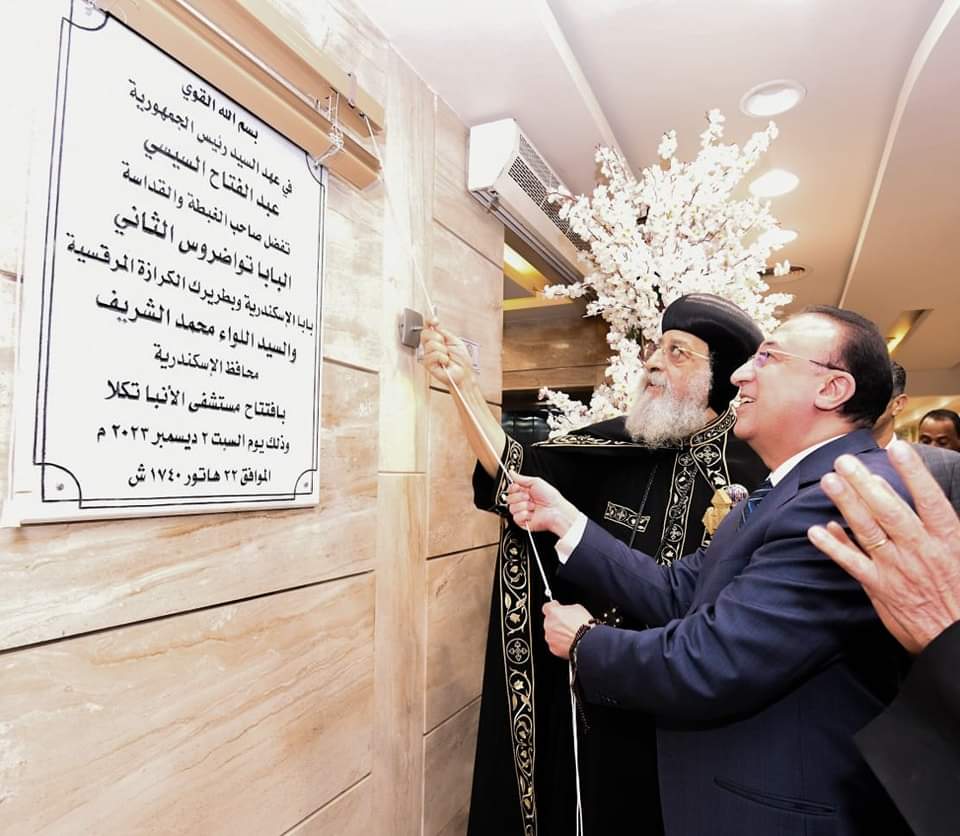 بسم الله القوي
في عهد السيد رئيس الجمهورية
عبد الفتاح السيسي
تفضل صاحب الغبطة والقداسة
البابا تواضروس الثاني
بابا الإسكندرية وبطريرك الكرازة المرقسية
والسيد اللواء محمد الشريف
محافظ الإسكندرية
بافتتاح مستشفى الأنبا تكلا
وذلك يوم السبت ٢ ديسمبر ٢٠٢٣ م
الموافق ٢٢ هاتور ١٧٤٠ ش